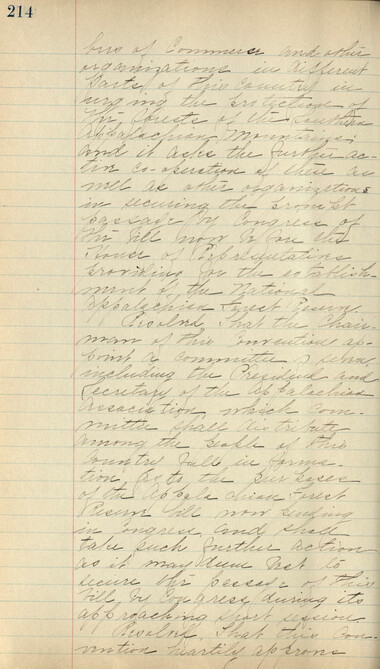 214
bers of Commerce and other
organizations in different
parts of this Country in
urging the protection of
the forests of the Southern
Appalachian Mountains;
and it asks the further ac-
tive co-operation of these as
well as other organizations
in securing the prompt
passage by Congress of
the bill now before the
House of Representatives
providing for the establish-
ment of the National
Appalachian Forest Reserve.
Resolved, That the Chair-
man of this Convention ap-
point a Committee of
including the President and
Secretary of the Appalachian
Association which Com-
mittee shall distribute
among the people of this
Country full informa-
tion as to the purposes
of the Appalachian Forest
Reserve bill now pending
in Congress and shall
take such further action
as it may deem best to
secure the passage of this
bill by Congress during its
approaching short session
Resolved, That this Con-
vention heartily approves